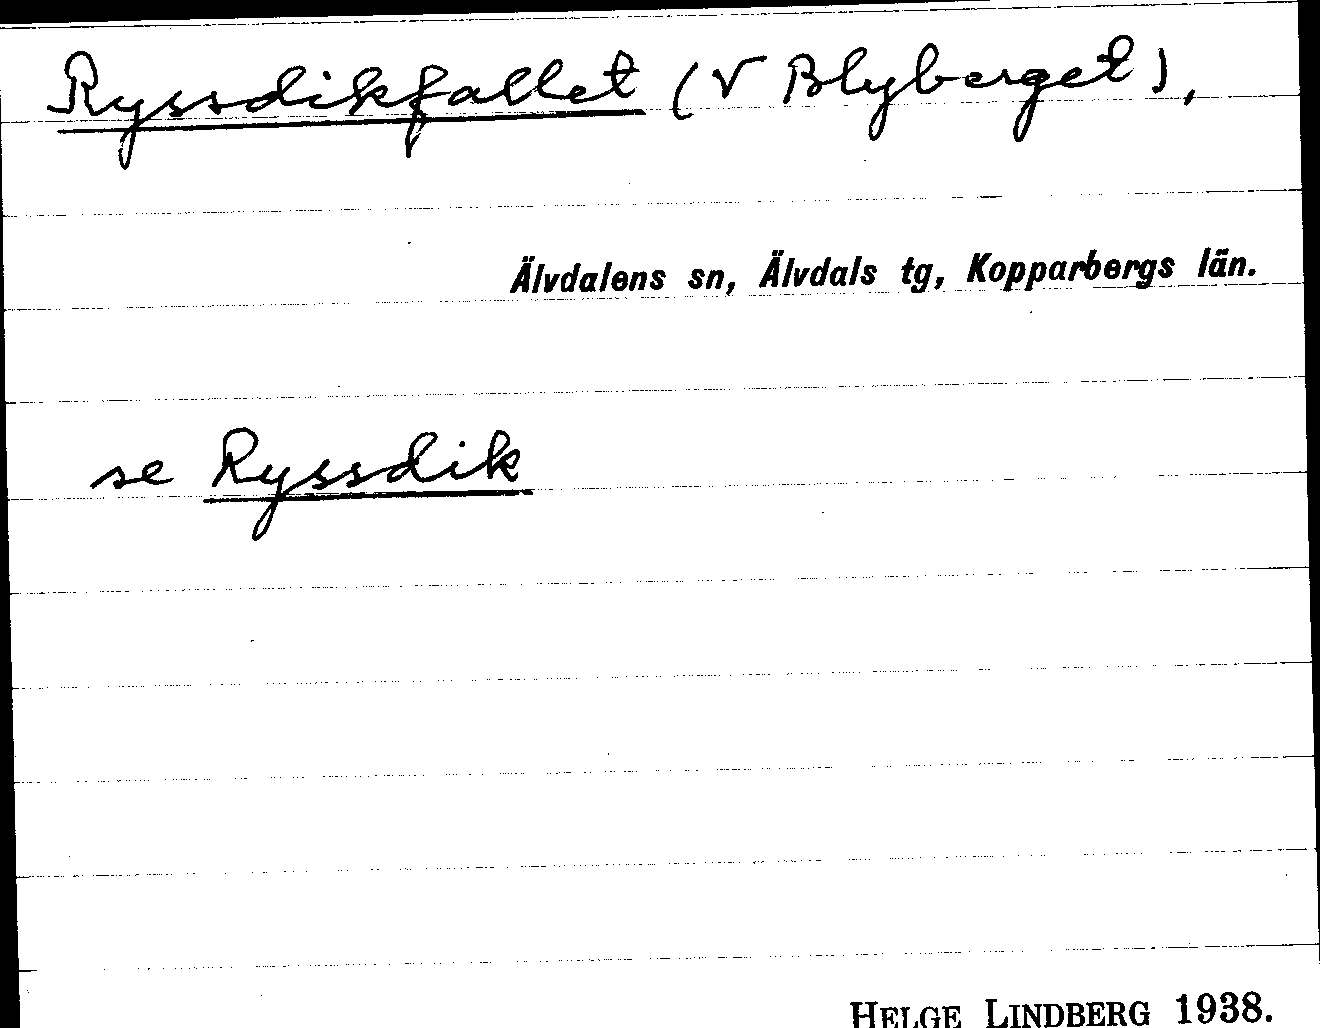 Ryssdikfallet (V Blyberget),
Älvdalens sn, Älvdals tg, Kopparbergs län.
se Ryssdik
HELGE LINDBERG 1938.